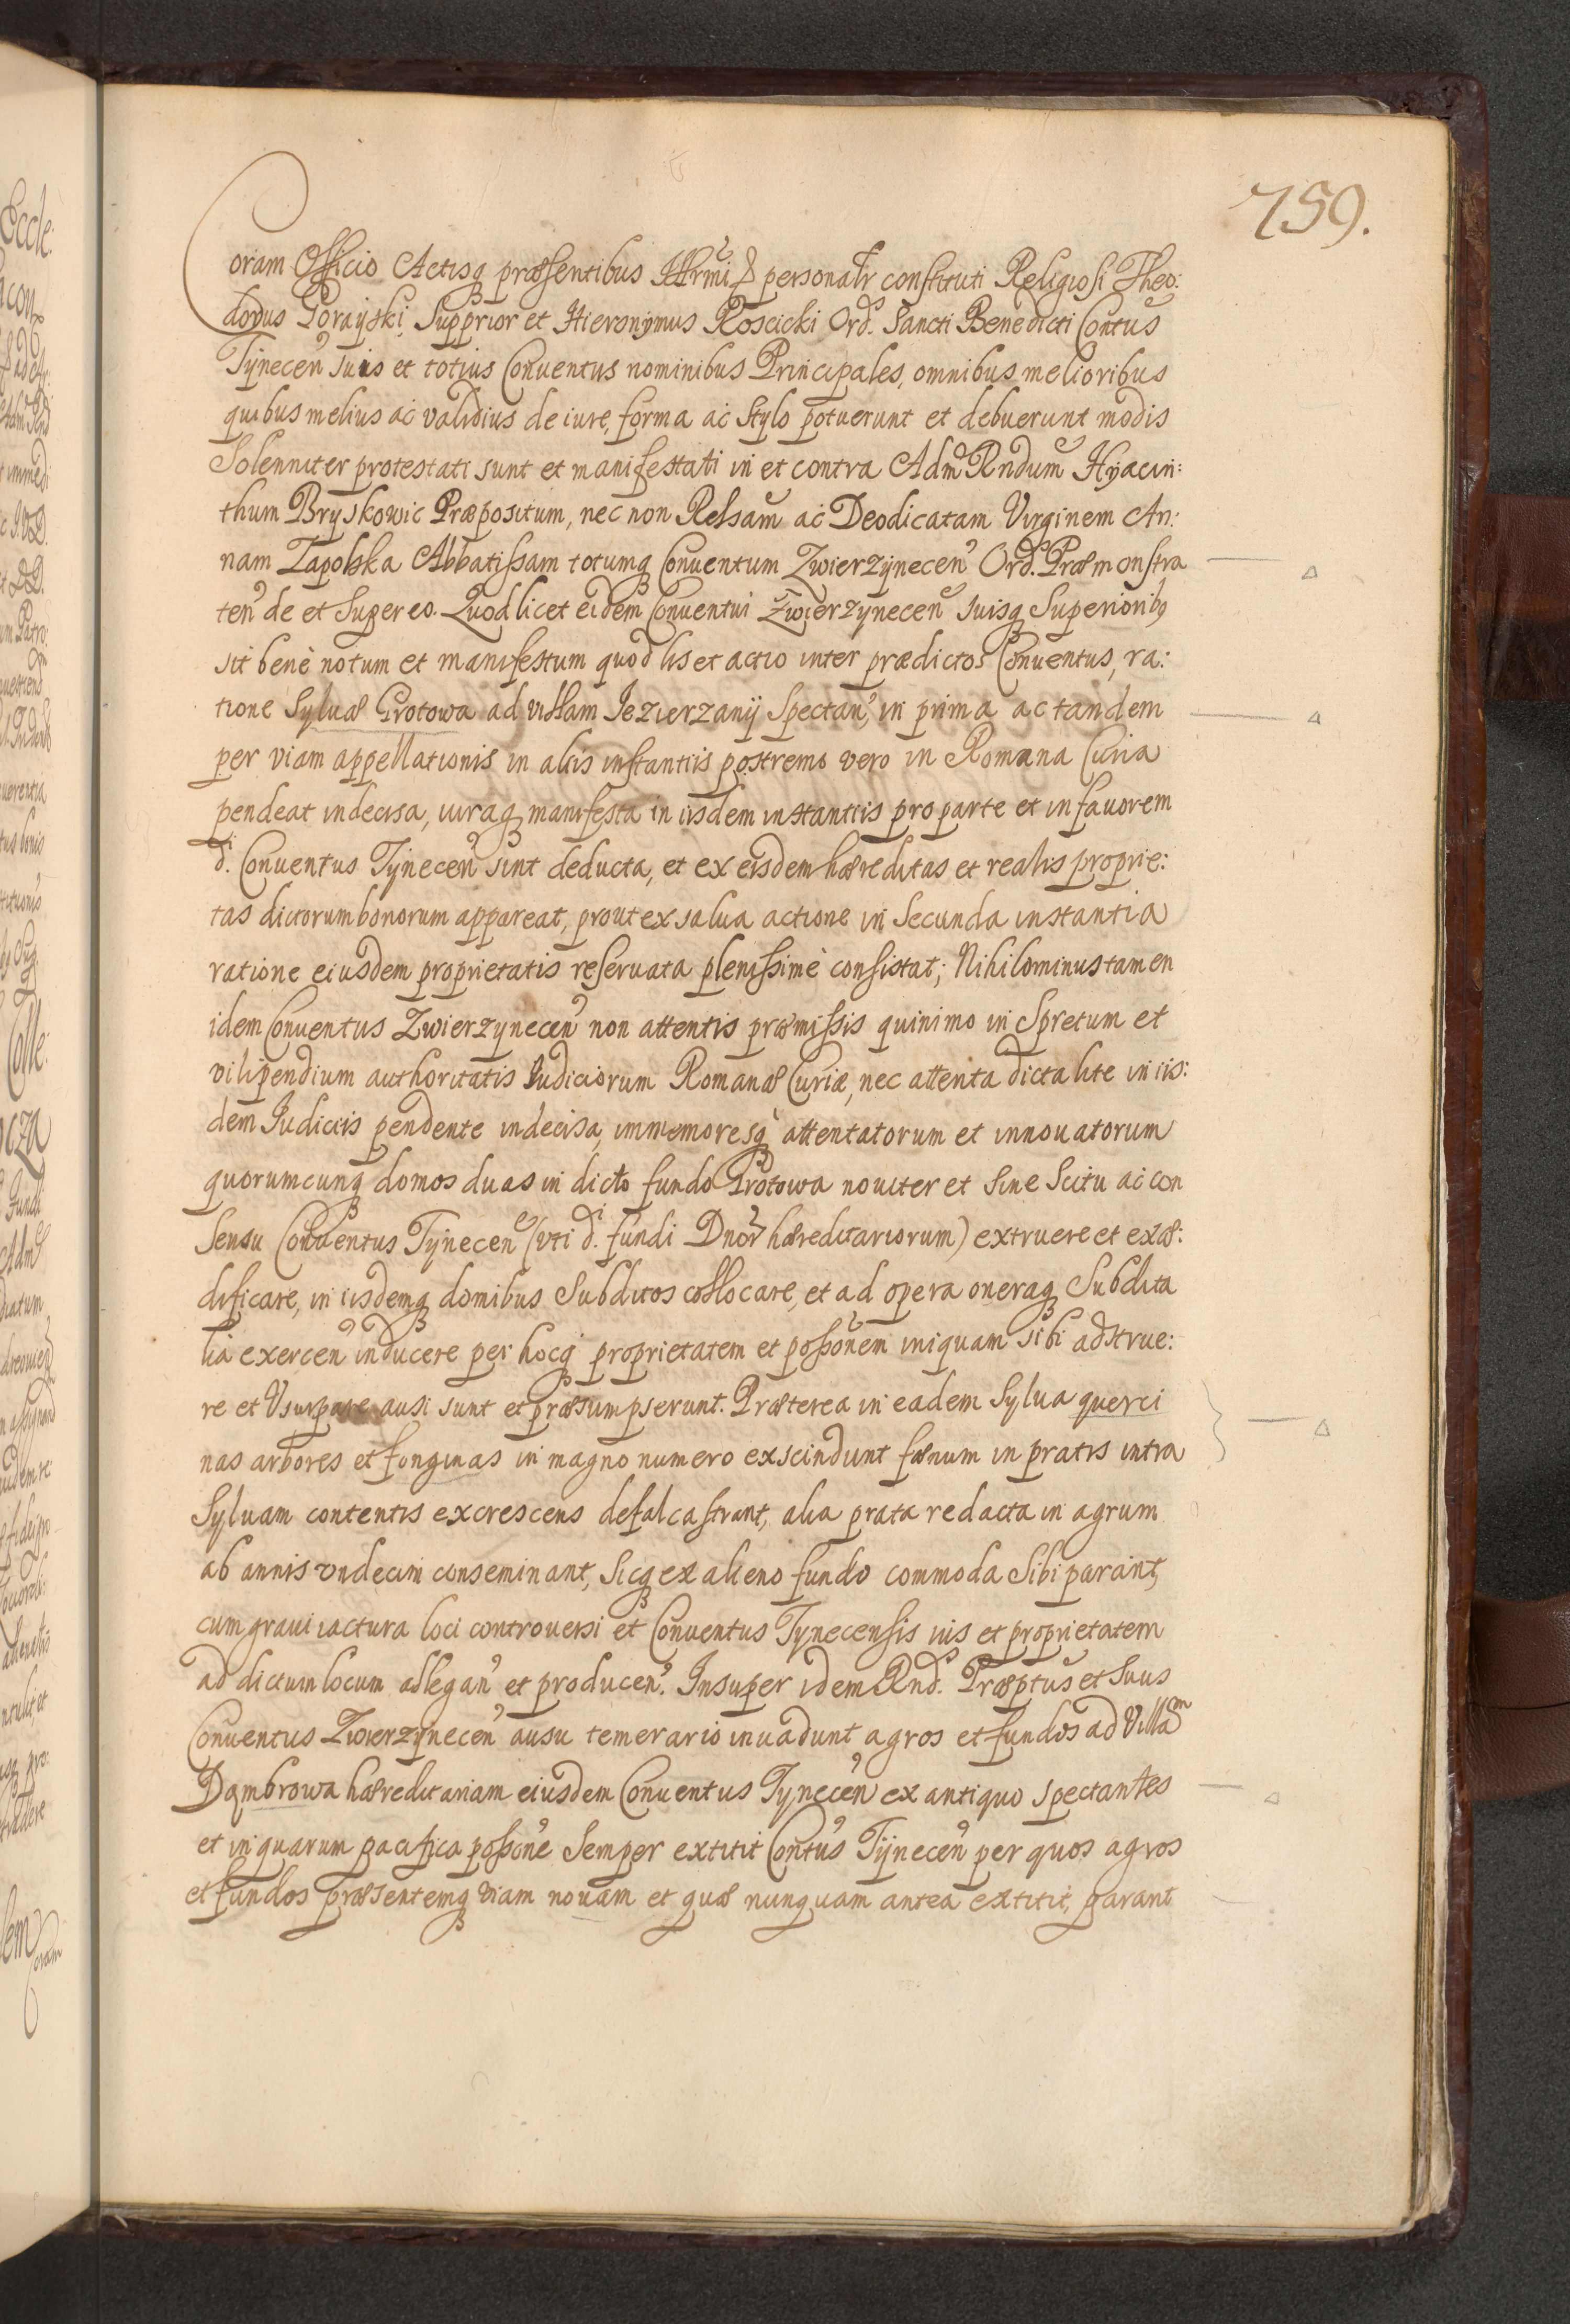 759.
Coram Officio Actisq praesentibus personalr constituti Religiosi Theo:
dorus Gorayski Supprior et Hieronymus Roscicki Ord. Sancti Benedicti Contus
Tynecen suis et totius Conuentus nominibus Principales, omnibus melioribus
quibus melius ac validius de iure, forma ac stylo potuerunt et debuerunt modis
Solenniter protestati sunt et manifestati in et contra Adm Rndum Hyacin:
thum Bryskowic Præpositum, nec non Relsam ac Deodicatam Virginem An:
nam Zapolska Abbatissam totumq Conuentum Zwierzynecen Ord. Præmonstra
ten de et super eo. Quod licet eidem Conuentui Zwierzynecen suisq Superiorib9
sit benè notum et manifestum quod lis et actio inter prædictos Conuentus, ra:
tione Syluæ Grotowa ad villam Iezierzany Spectan, in prima ac tandem
per viam appellationis in aliis instantiis postremo vero in Romana Curia
pendeat indecisa, iuraq manifesta in iisdem instantiis pro parte et in fauorem
di. Conuentus Tynecen sint deducta, et ex eisdem hæreditas et realis proprie:
tas dictorum bonorum appareat, prout ex salua actione in Secunda instantia
ratione eiusdem proprietatis reseruata plenissimè consistat; Nihilominus tamen
idem Conuentus Zwierzynecen non attentis præmissis quinimo in Spretum et
vilipendium authoritatis Iudiciorum Romanæ Curiæ, nec attenta dicta lite in iis:
dem Iudiciis pendente indecisa, immemoresq attentatorum et innouatorum
quorumcunq domos duas in dicto fundo Grotowa nouiter et Sine Scitu ac con
Sensu Conuentus Tynecen (vti di. fundi Dnor hæreditariorum) extruere et exæ:
dificare, in iisdemq domibus Subditos collocare, et ad opera oneraq Subdita
lia exercen inducere per hocq proprietatem et possonem iniquam sibi adstrue:
re et Vsurpare ausi sunt et præsumpserunt. Præterea in eadem Sylua querci
nas arbores et fonginas in magno numero exscindunt fænum in pratis intra
Syluam contentis excrescens defalcastrant, alia prata redacta in agrum
ab annis vndecim conseminant, Sicq ex alieno fundo commoda Sibi parant,
cum graui iactura loci controuersi et Conuentus Tynecensis ius et proprietatem
ad dictum locum allegan et producen. Insuper idem Rnd. Præptus et Suus
Conuentus Zwierzynecen ausu temerario inuadunt agros et fundos ad Villam
Dąmbrowa hæreditariam eiusdem Conuentus Tynecen ex antiquo spectantes
et in quarum pacifica possone Semper extitit Contus Tynecen per quos agros
et fundos præsentemq viam nouam et quæ nunquam antea extitit, parant